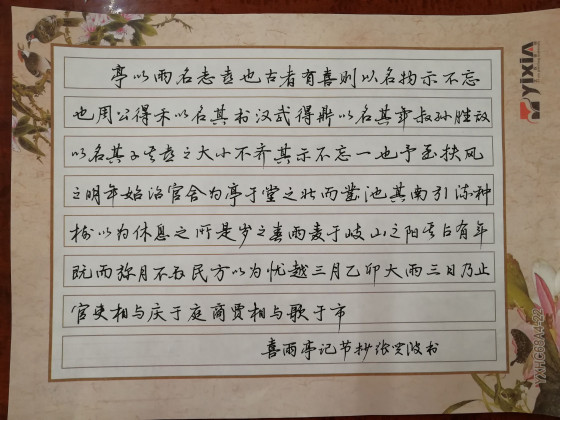 亭以雨名志喜也古者有喜则以名物示不忘
也周公得禾以名其书汉武得鼎以名其年叔孙胜敌
以名其子其喜之大小不齐其示不忘一也予至扶风
之明年始治官舍为亭于堂之北而凿池其南引流种
树以为休息之所是岁之春雨麦于岐山之阳其占有年
既而弥月不雨民方以为忧越三月乙卯大雨三日乃止
官吏相与庆于庭商贾相与歌于市
喜雨亭记节抄张波书
yixin